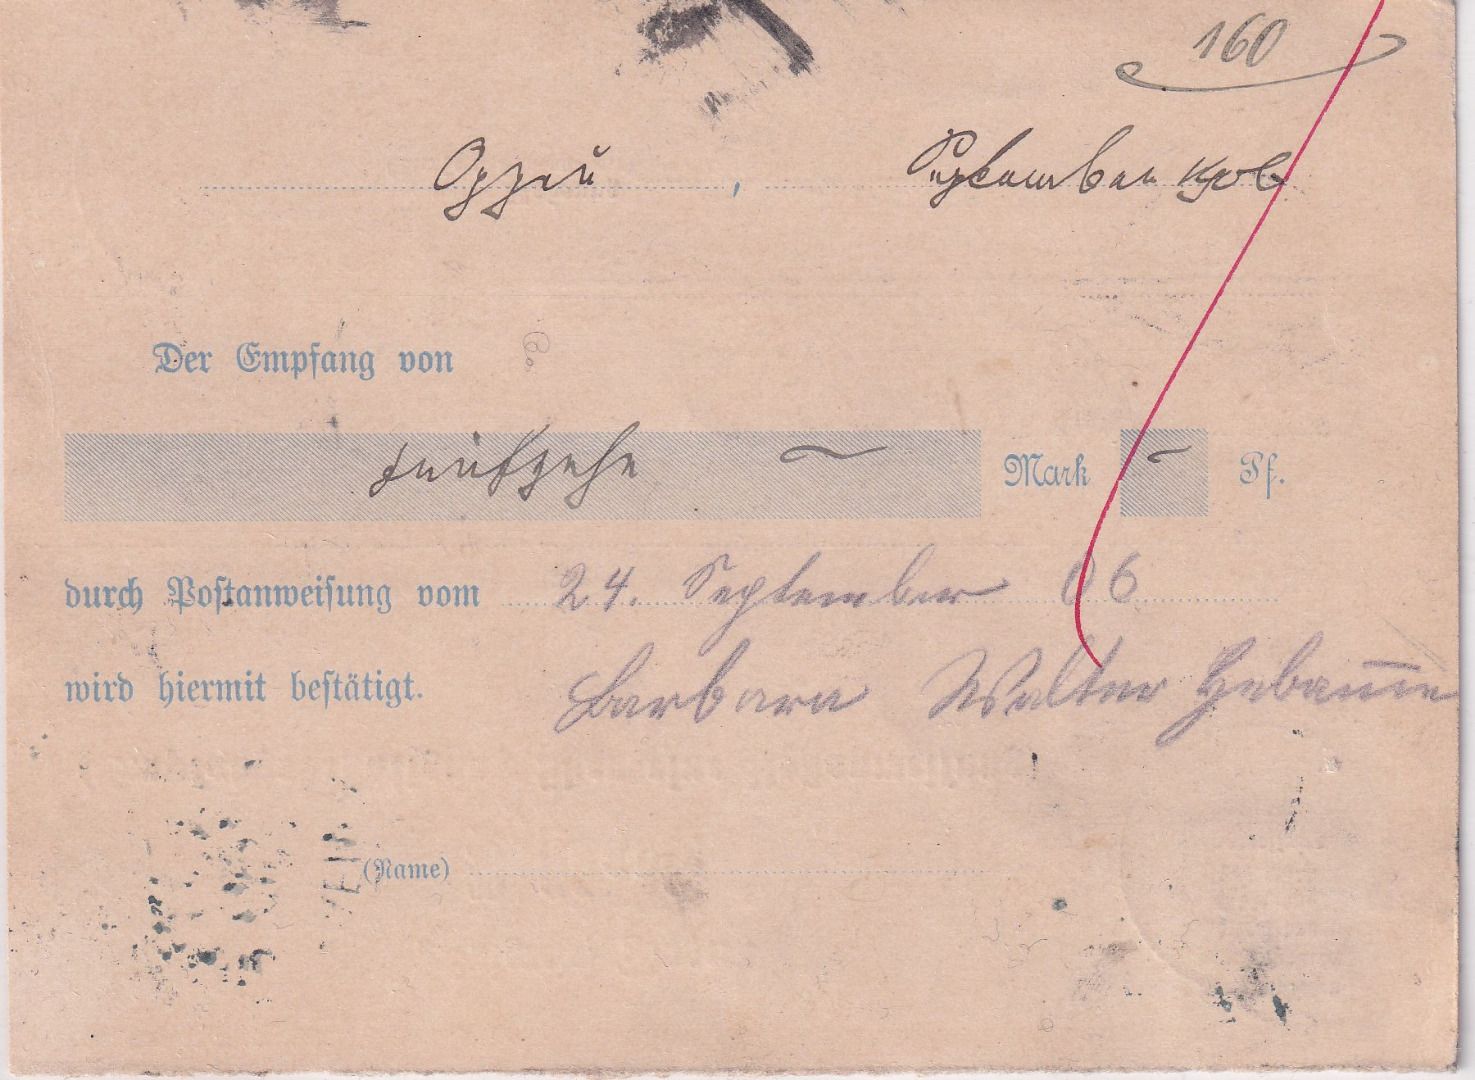 160
Oppau, September 1906
Der Empfang von
fünfzehn Mark - Pf.
durch Postanweisung vom 24. September 06
wird hiermit bestätigt. Barbara Walter
(Name)